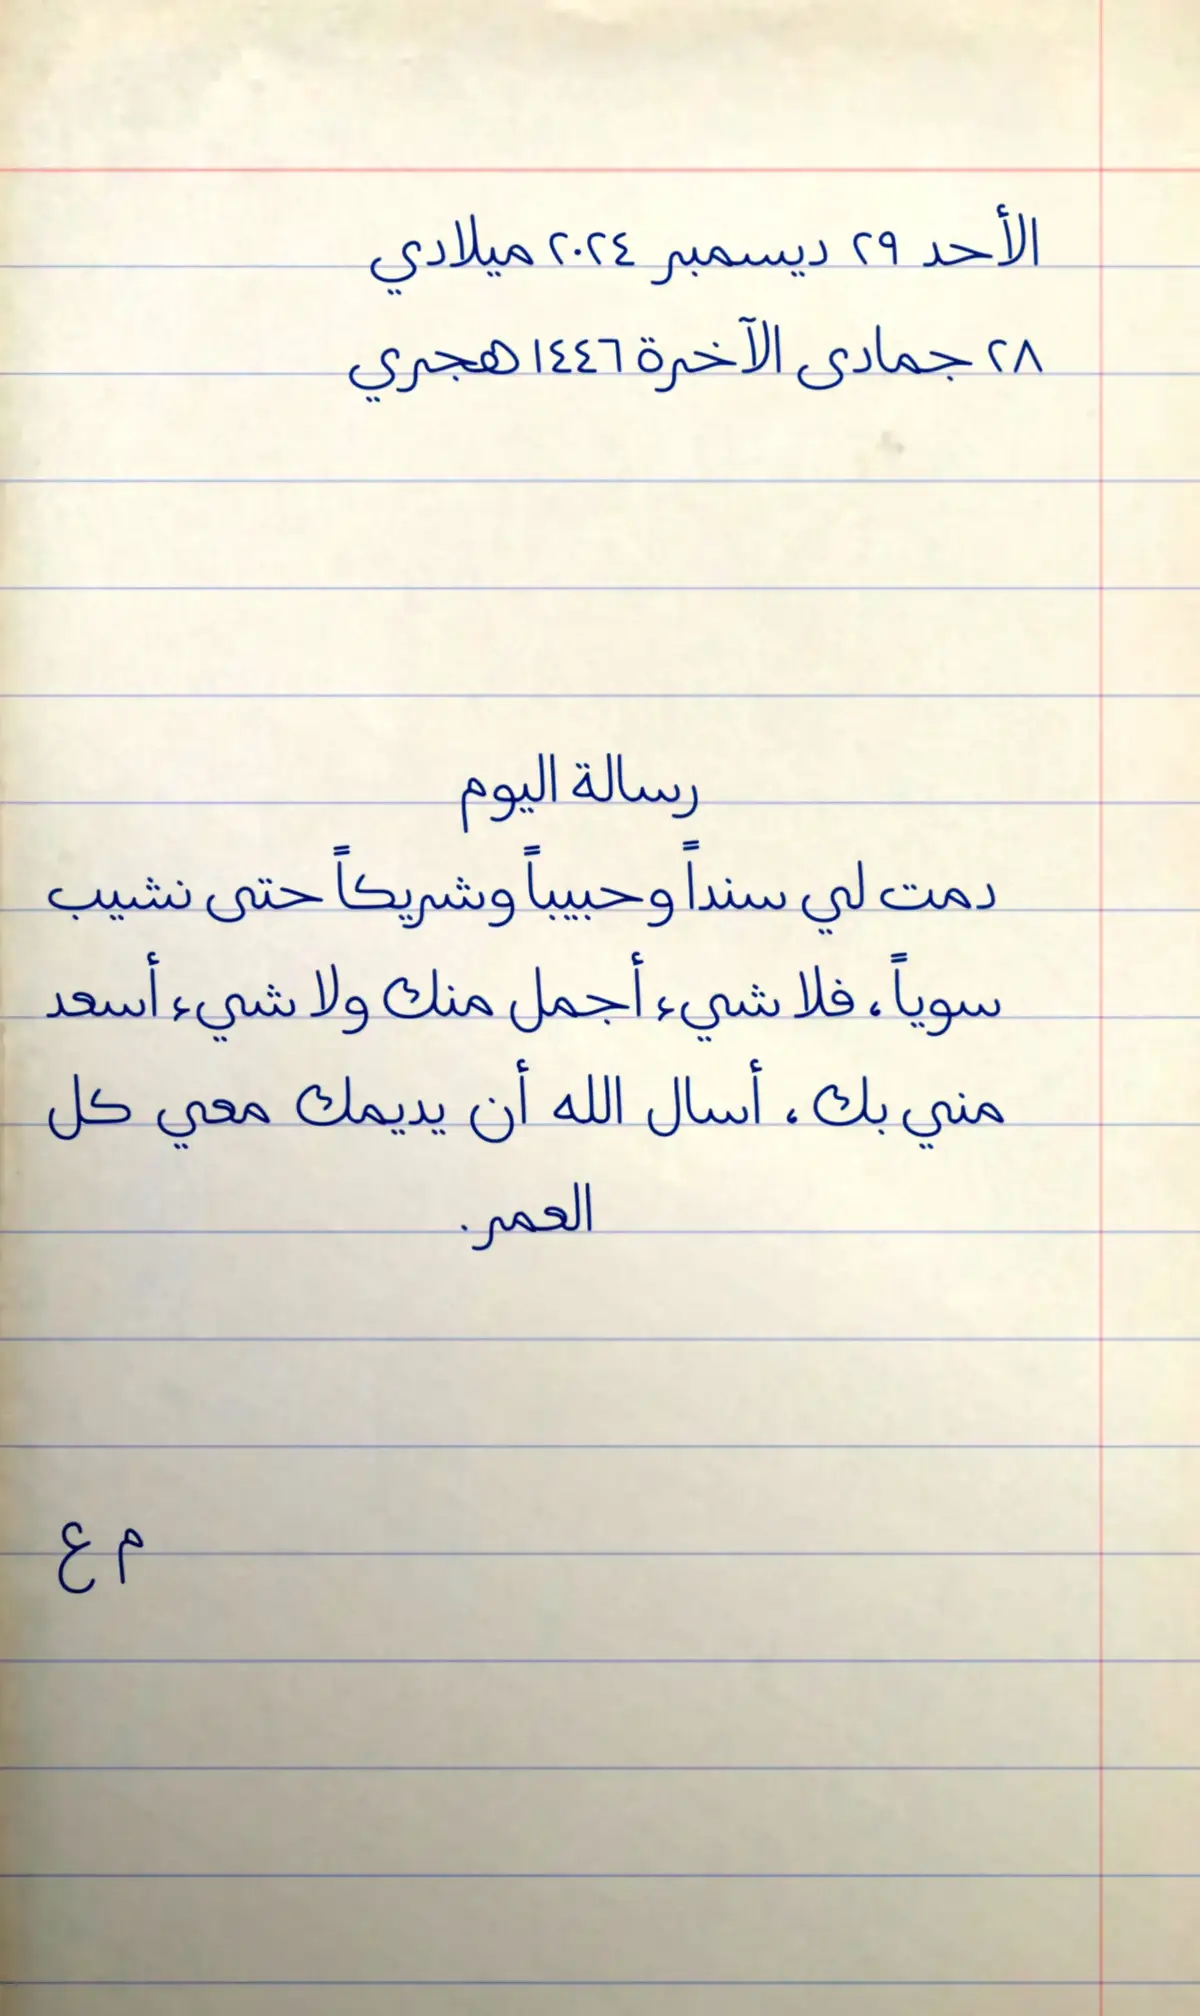 الأحد ٢٩ ديسمبر ٢٠٢٤ ميلادي
٢٨ جمادى الآخرة ١٤٤٦ هجري
رسالة اليوم
دمت لي سنداً وحبيباً وشريكاً حتى نشيب
سوياً، فلا شيء أجمل منك ولا شيء أسعد
مني بك، أسال الله أن يديمك معي كل
العمر.
م ع